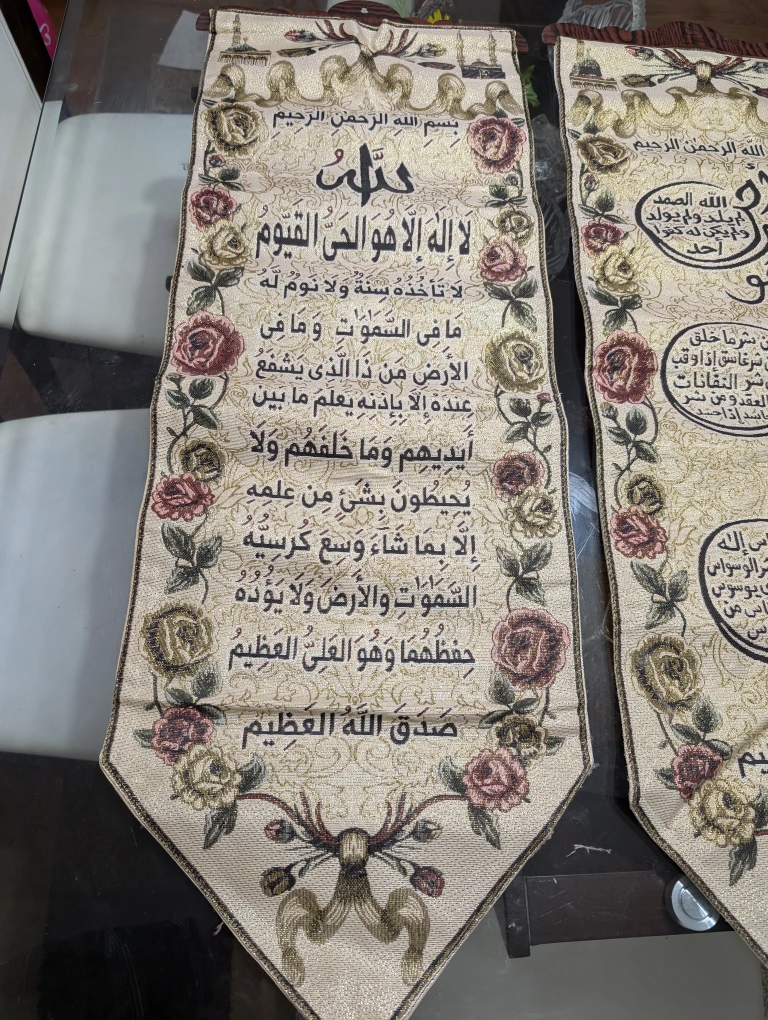 بسم الله الرحمن الرحيم
الله
لا إله إلا هو الحي القيوم
لا تأخذه سنة ولا نوم له
ما فى السموت وما فى
الأرض من ذا الذى يشفع
عنده إلا بإذنه يعلم ما بين
أيديهم وما خلفهم ولا
يحيطون بشئ من علمه
إلا بما شاء وسع كرسيه
السموت والأرض ولا يؤده
حفظهما وهو العلى العظيم
صدق الله العظيم
الله الرحمن الرحيم
الله الصمد
لم يلد ولم يولد
ولم يكن له كفوا
أحد
شر ما خلق
غاسق إذا وقب
شر النفاثات
العقد ومن شر
حاسد إذا حسد
إله
الوسواس
يوسوس
من